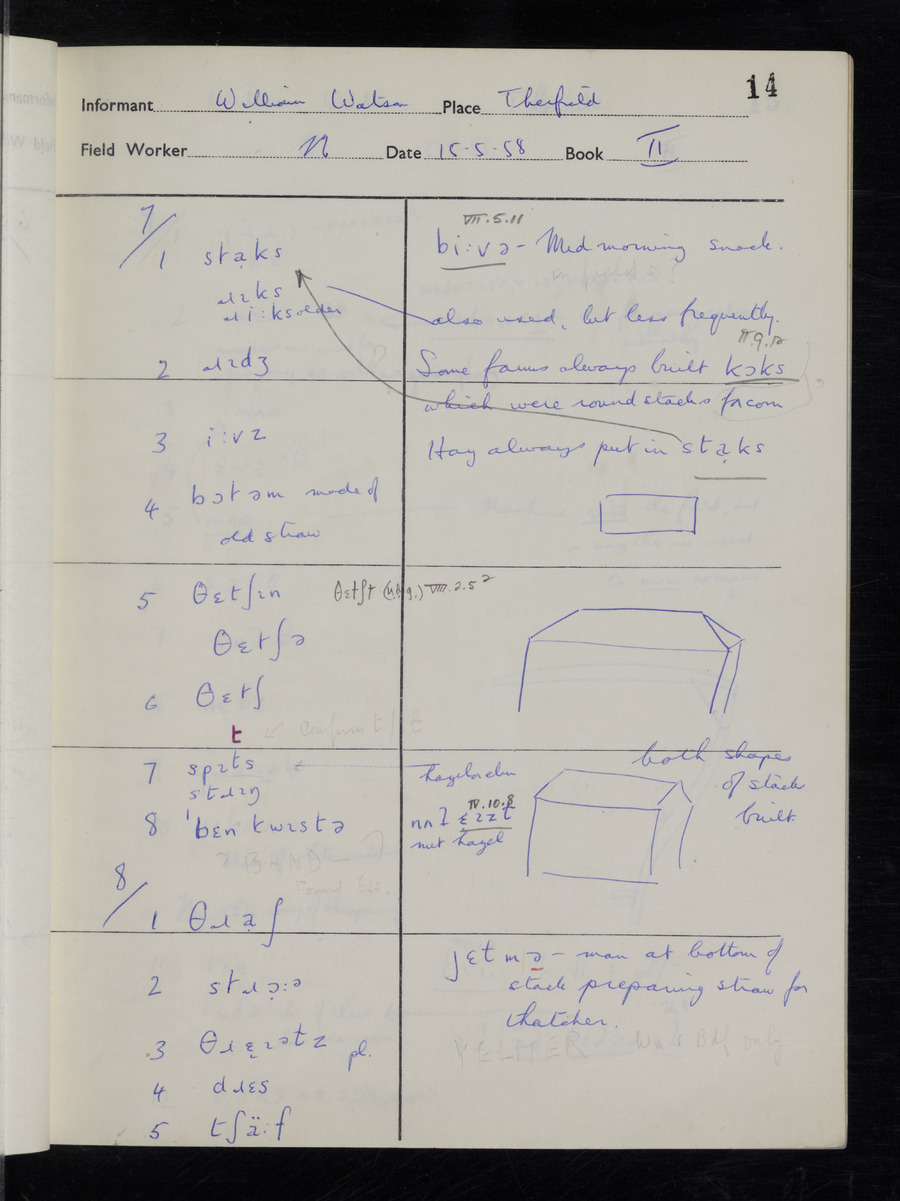 14
Informant William Watson Place Therfield
Field Worker N Date 15-5-58 Book II
7/1 sta̝ks
ɹɪks
ɹi:ks older
2 ɹɪdʒ
3 i:vz
4 bɔtəm made of
old straw
5 θɛtʃɪn θɛtʃt VIII.2.5
θɛtʃə
6 θɛtʃ
t ↙ confirm t/t
7 spɪts
stɹɪŋ
8 ˈbɛn kwɪstə
? BAND
8/1 θɹa̝ʃ
2 stɹɔ̝:ə
3 pl.
4 dɹɛs
5 tʃä:f
VII.5.11
bi:və - Mid morning snack.
in fields?
also used, but less frequently.
II.9.12
Some farms always built kɔks
which were round stacks for corn
Hay always put in sta̝ks
both shapes
of stack
built
hazel or elm
IV.10.8
nut hazel
jɛtmə - man at bottom of
stack preparing straw for
thatcher.
YELMER Bdf only